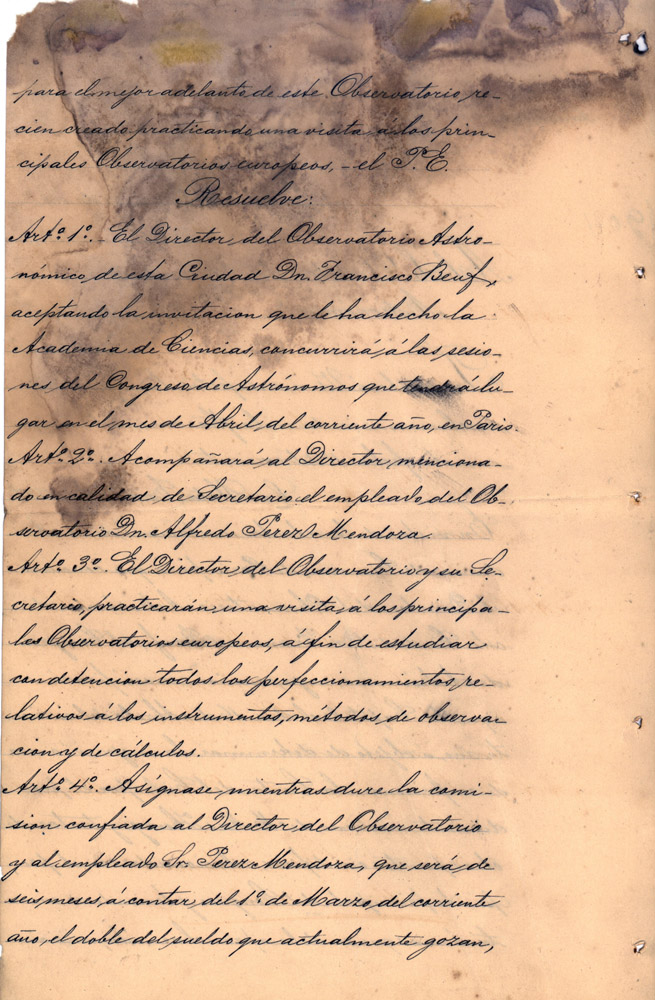 para el mejor adelanto de este Observatorio, re-
cien creado practicando una visita á los prin-
cipales Observatorios europeos, - el P. E.
Resuelve:
Artº 1º. - El Director del Observatorio Astro-
nómico de esta Ciudad Dn. Francisco Beuf,
aceptando la invitacion que le ha hecho la
Academia de Ciencias, concurrirá á las sesio-
nes del Congreso de Astrónomos que tendrá lu-
gar en el mes de Abril del corriente año, en Paris.
Artº 2º. Acompañará al Director menciona-
do en calidad de Secretario el empleado del Ob-
servatorio Dn. Alfredo Perez Mendoza.
Artº 3º. El Director del Observatorio y su Se-
cretario, practicarán una visita á los principa-
les Observatorios europeos, á fin de estudiar
con detencion todos los perfeccionamientos re-
lativos á los instrumentos, métodos de observa-
cion y de cálculos.
Artº 4º. Asígnase, mientras dure la comi-
sion confiada al Director del Observatorio
y al empleado Sr. Perez Mendoza, que será de
seis meses, á contar del 1º de Marzo del corriente
año, el doble del sueldo que actualmente gozan,